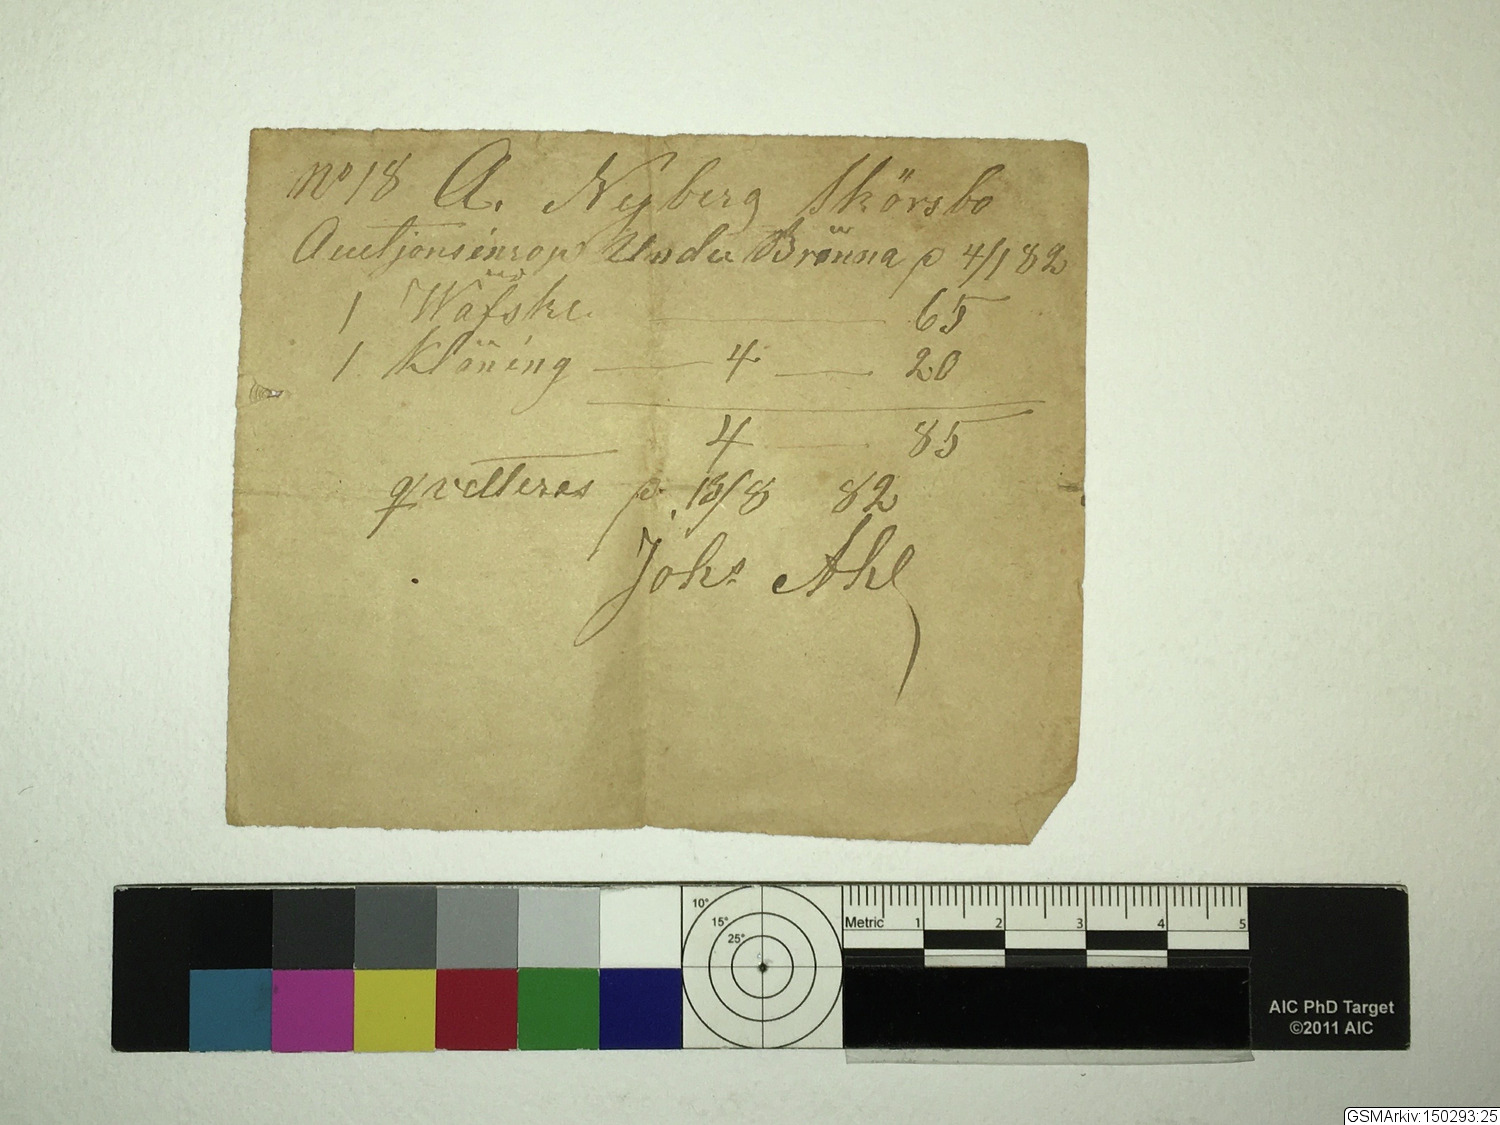 No 18 A. Nyberg Skörsbo
Auctjonsinrop Undu Brönna p 4/1 82
1 Wäfske 65
1 Klöning 4 20
4 85
qvitteras p. 13/8 82
Johs Ahl
10°
15°
25°
Metric 1 2 3 4 5
AIC PhD Target
©2011 AIC
GSMArkiv:150293:25